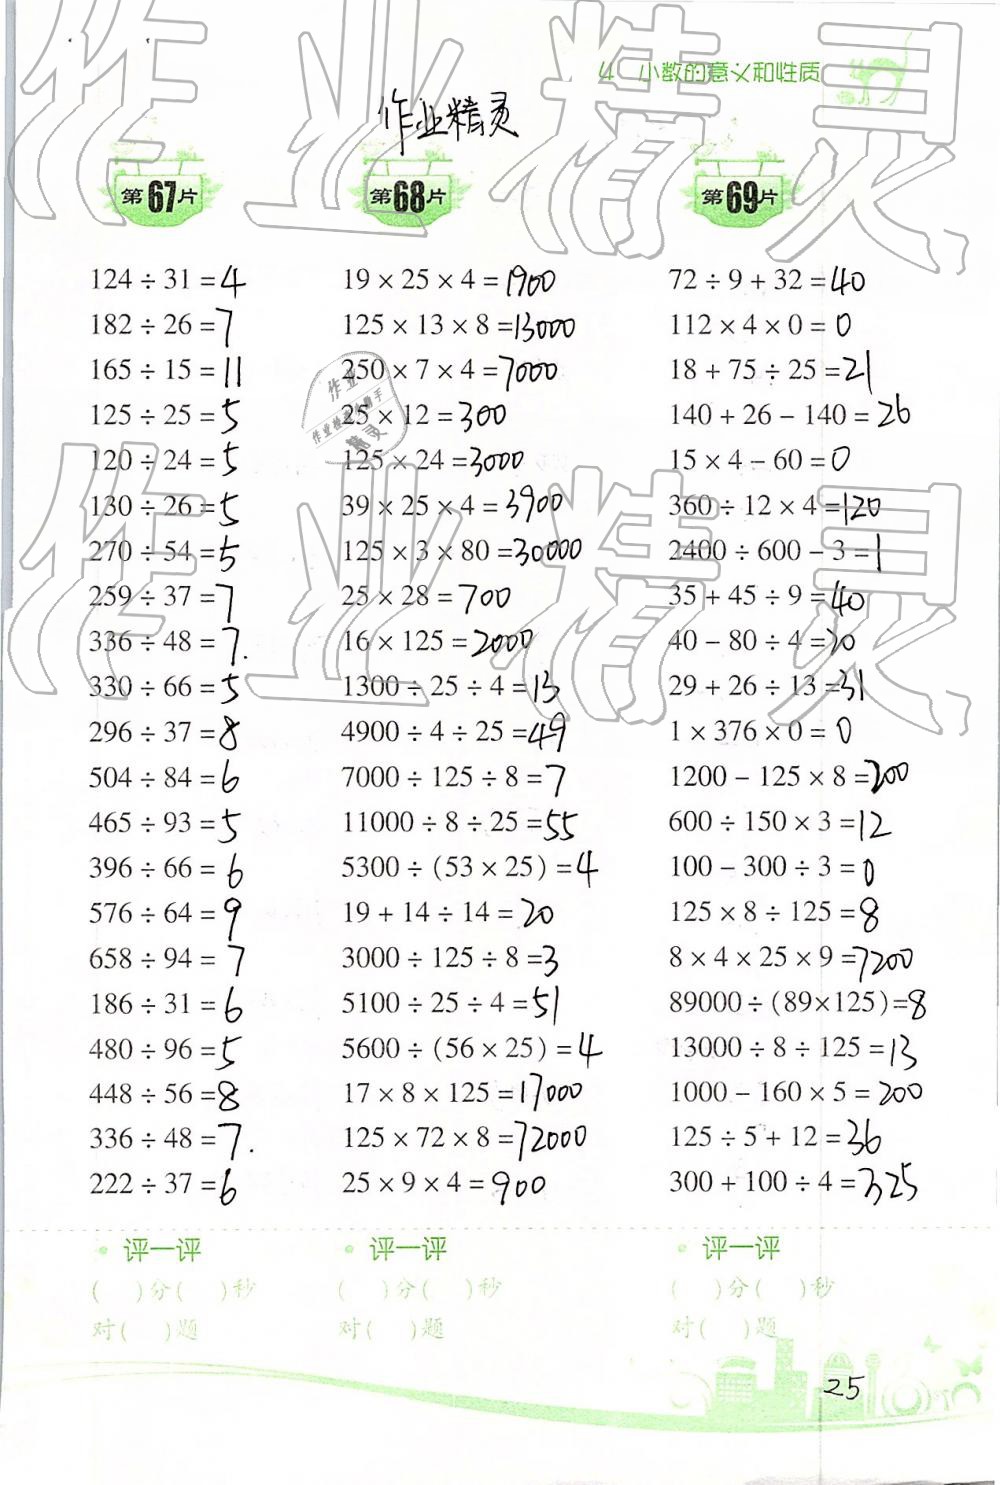 4 小数的意义和性质
作业精灵
第67片
124 ÷ 31 = 4
182 ÷ 26 = 7
165 ÷ 15 = 11
125 ÷ 25 = 5
120 ÷ 24 = 5
130 ÷ 26 = 5
270 ÷ 54 = 5
259 ÷ 37 = 7
336 ÷ 48 = 7.
330 ÷ 66 = 5
296 ÷ 37 = 8
504 ÷ 84 = 6
465 ÷ 93 = 5
396 ÷ 66 = 6
576 ÷ 64 = 9
658 ÷ 94 = 7
186 ÷ 31 = 6
480 ÷ 96 = 5
448 ÷ 56 = 8
336 ÷ 48 = 7.
222 ÷ 37 = 6
评一评
( )分( )秒
对( )题
第68片
19 × 25 × 4 = 1900
125 × 13 × 8 = 13000
250 × 7 × 4 = 7000
25 × 12 = 300
125 × 24 = 3000
39 × 25 × 4 = 3900
125 × 3 × 80 = 30000
25 × 28 = 700
16 × 125 = 2000
1300 ÷ 25 ÷ 4 = 13
4900 ÷ 4 ÷ 25 = 49
7000 ÷ 125 ÷ 8 = 7
11000 ÷ 8 ÷ 25 = 55
5300 ÷ (53 × 25) = 4
19 + 14 ÷ 14 = 20
3000 ÷ 125 ÷ 8 = 3
5100 ÷ 25 ÷ 4 = 51
5600 ÷ (56 × 25) = 4
17 × 8 × 125 = 17000
125 × 72 × 8 = 72000
25 × 9 × 4 = 900
评一评
( )分( )秒
对( )题
第69片
72 ÷ 9 + 32 = 40
112 × 4 × 0 = 0
18 + 75 ÷ 25 = 21
140 + 26 - 140 = 26
15 × 4 - 60 = 0
360 ÷ 12 × 4 = 120
2400 ÷ 600 - 3 = 1
35 + 45 ÷ 9 = 40
40 - 80 ÷ 4 = 20
29 + 26 ÷ 13 = 31
1 × 376 × 0 = 0
1200 - 125 × 8 = 200
600 ÷ 150 × 3 = 12
100 - 300 ÷ 3 = 0
125 × 8 ÷ 125 = 8
8 × 4 × 25 × 9 = 7200
89000 ÷ (89×125) = 8
13000 ÷ 8 ÷ 125 = 13
1000 - 160 × 5 = 200
125 ÷ 5 + 12 = 36
300 + 100 ÷ 4 = 325
评一评
( )分( )秒
对( )题
25
作业精灵
作业精灵